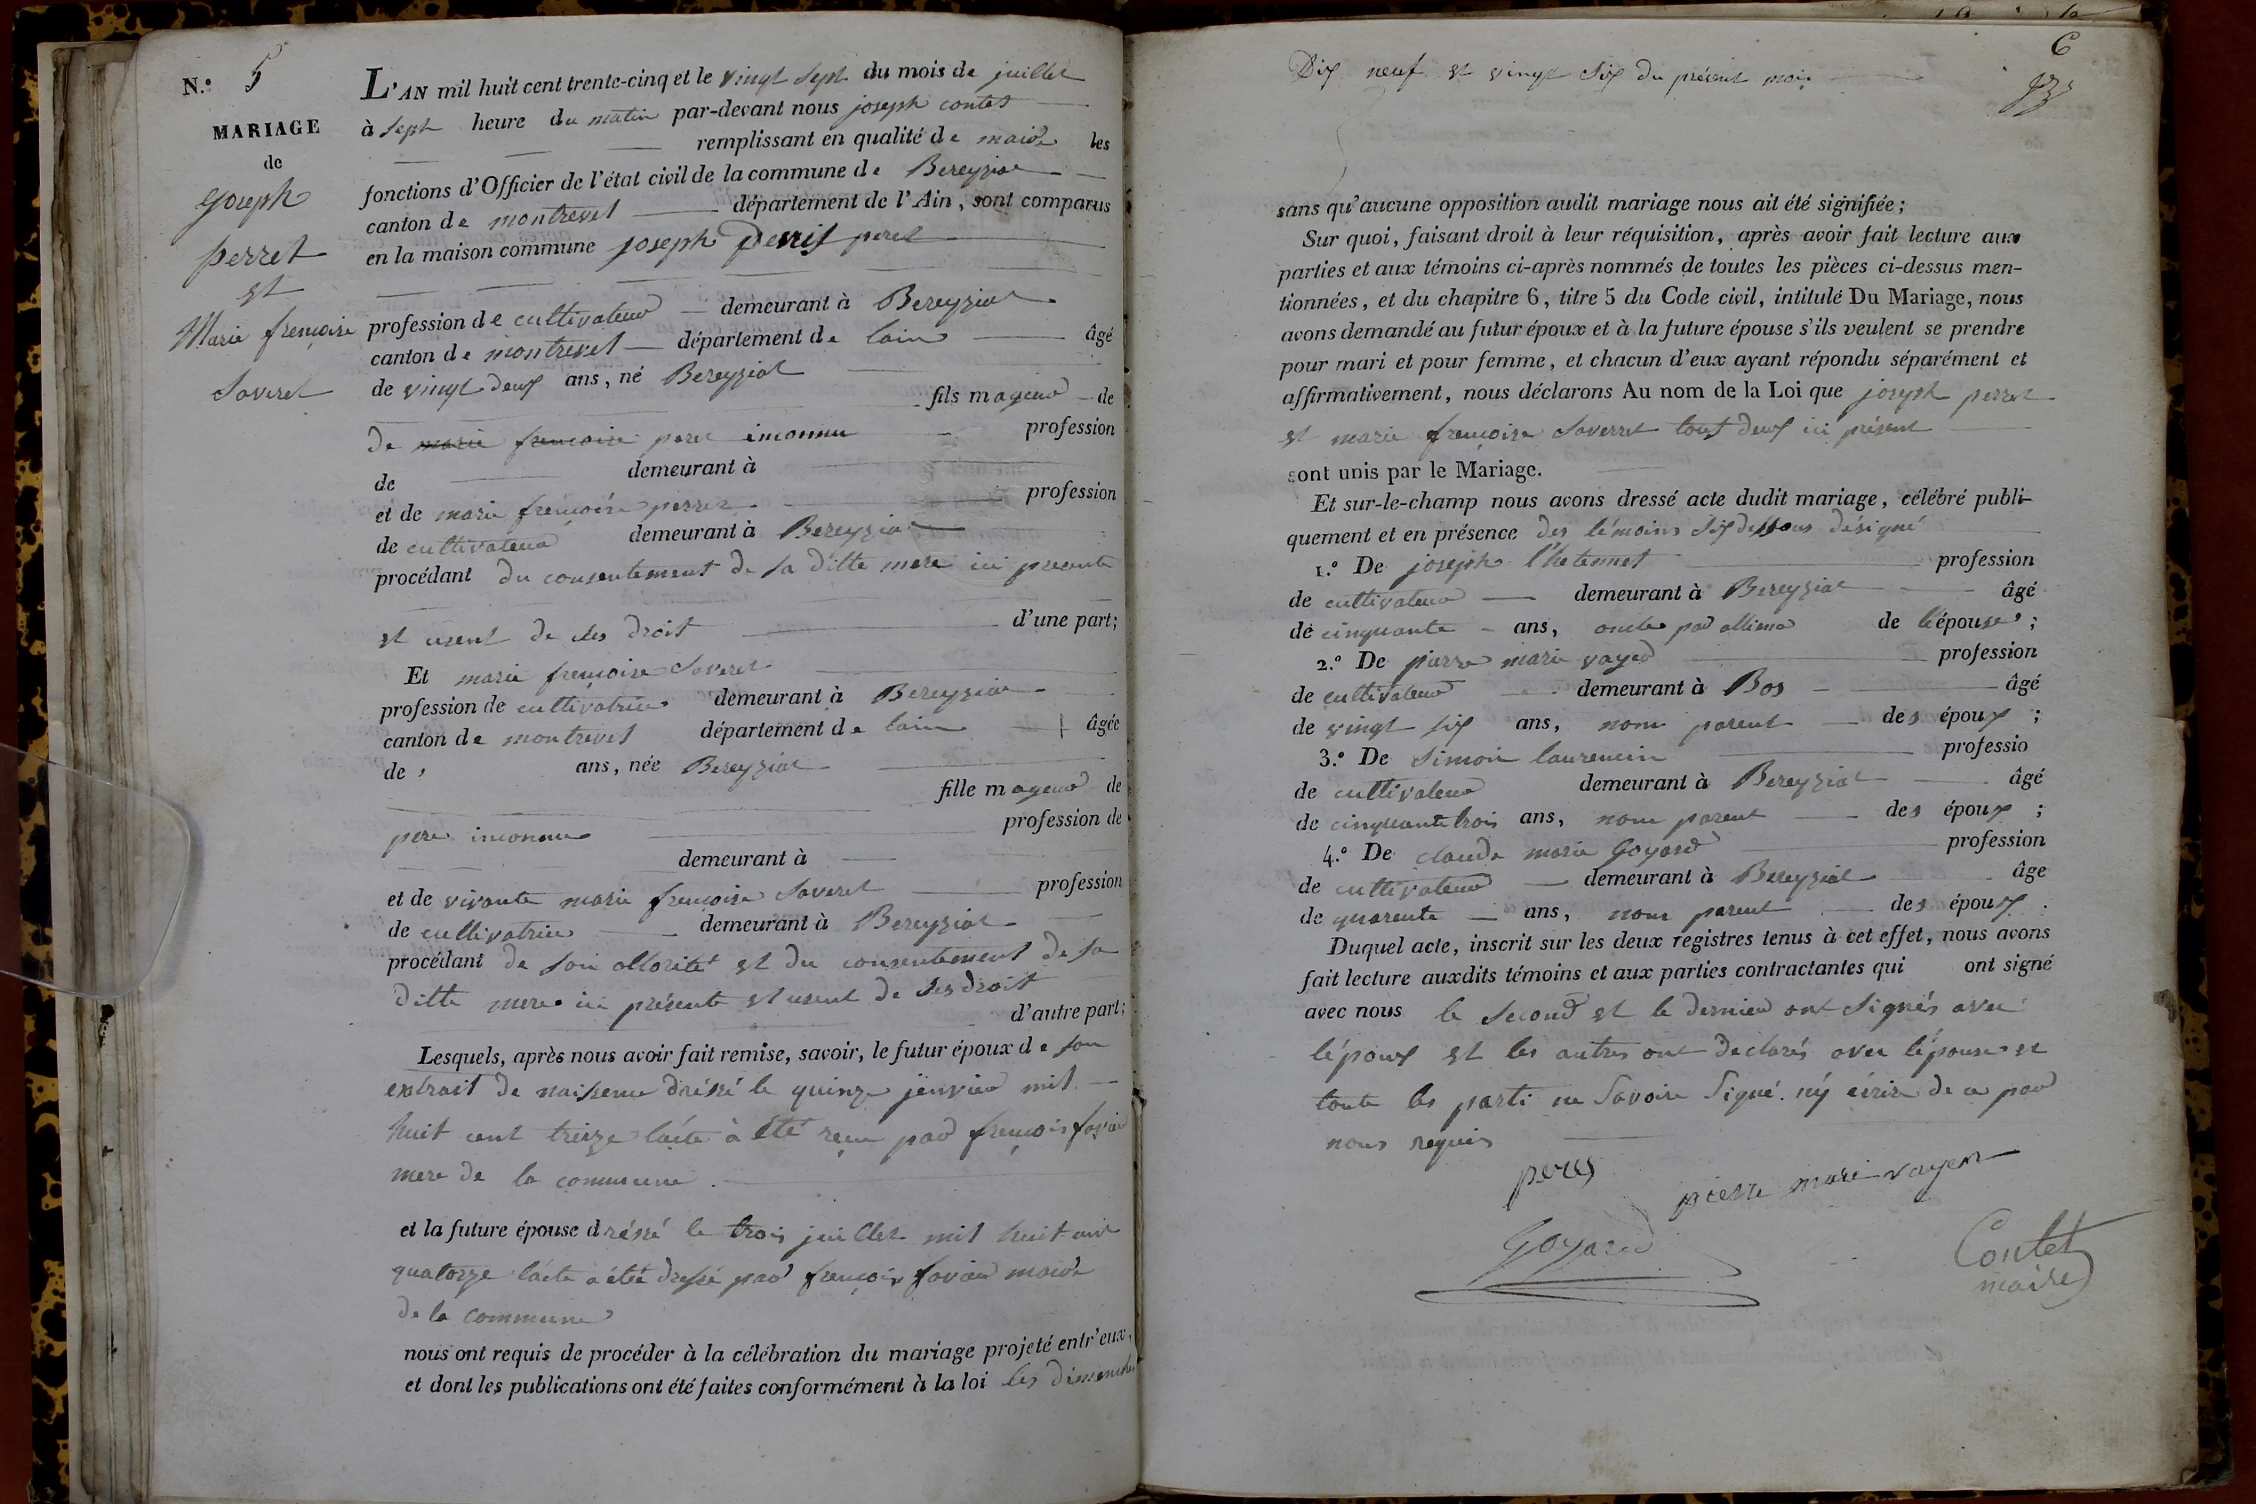 N.º 5
MARIAGE
de
joseph
perret
et
Marie frençoise
Saveret
L'AN mil huit cent trente-cinq et le vingt sept du mois de juillet
à sept heure du matin par-devant nous joseph contet
remplissant en qualité de maire les
fonctions d'Officier de l'état civil de la commune de Bereyziat
canton de montrevel département de l'Ain, sont comparus
en la maison commune joseph perret
profession de cultivateur demeurant à Bereyziat
canton de montrevel département de lain âgé
de vingt deux ans, né Bereyziat
fils mageur de
de marie frençoise pere inconnu profession
de demeurant à
et de marie frençoise perret profession
de cultivateur demeurant à Bereyziat
procédant du consentement de sa ditte mere ici presente
et usent de ses droit d'une part;
Et marie frençoise Saveret
profession de cultivatrice demeurant à Bereyziat
canton de montrevel département de lain âgée
de ans, née Bereyziat
fille mageur de
pere inconnu profession de
demeurant à
et de vivante marie frençoise Saveret profession
de cultivatrice demeurant à Bereyziat
procédant de son ottorité et du consentement de sa
ditte mere ici présente et usent de ses droit
d'autre part;
Lesquels, après nous avoir fait remise, savoir, le futur époux de son
extrait de naissence dréssé le quinze jenvier mil
huit cent treize lácte à été reçu par frençois favier
mere de la commune
et la future épouse dréssé le trois juillet mil huit cent
quatorze lácte a été dressé par frençois favier maire
de la commune
nous ont requis de procéder à la célébration du mariage projeté entr'eux,
et dont les publications ont été faites conformément à la loi les dimenches
6
Dix neuf et vingt six du présent mois
sans qu'aucune opposition audit mariage nous ait été signifiée;
Sur quoi, faisant droit à leur réquisition, après avoir fait lecture aux
parties et aux témoins ci-après nommés de toutes les pièces ci-dessus men-
tionnées, et du chapitre 6, titre 5 du Code civil, intitulé Du Mariage, nous
avons demandé au futur époux et à la future épouse s'ils veulent se prendre
pour mari et pour femme, et chacun d'eux ayant répondu séparément et
affirmativement, nous déclarons Au nom de la Loi que joseph perret
et marie frençoise Saverret tout deux ici présent
sont unis par le Mariage.
Et sur-le-champ nous avons dressé acte dudit mariage, célébré publi-
quement et en présence des témoins six dessous désigné
1.º De joseph l'hetennet profession
de cultivateur demeurant à Bereyziat âgé
de cinquante ans, oncle par allience de l'épouse;
2.º De pierre marie vayer profession
de cultivateur demeurant à Bos âgé
de vingt six ans, nom parent des époux;
3.º De Simon laurencin professio
de cultivateur demeurant à Bereyziat âgé
de cinquante trois ans, nom parent des époux;
4.º De claude marie Goyard profession
de cultivateur demeurant à Bereyziat âge
de quarente ans, nom parent des époux.
Duquel acte, inscrit sur les deux registres tenus à cet effet, nous avons
fait lecture auxdits témoins et aux parties contractantes qui ont signé
avec nous le second et le dernier ont signés avec
lépoux et les autres ont declarés avec lépouse et
toute les parti ne Savoire Signé ný écrire de ce par
nous requis
peres
pierre marie vayer
Goyard
Contet
maire